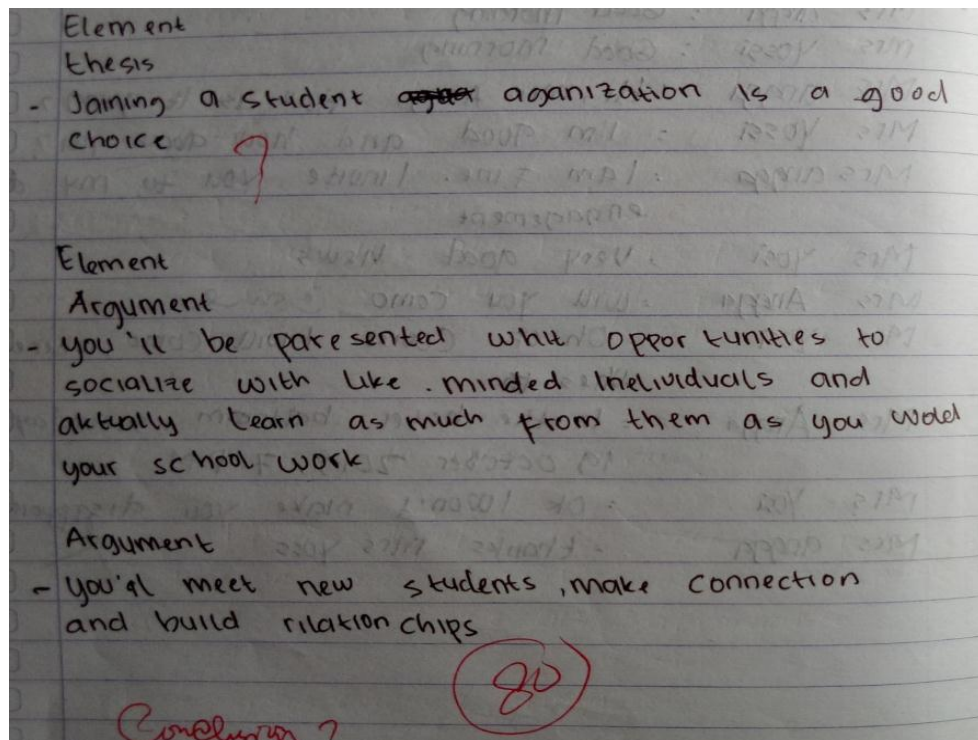 Element
thesis
- Joining a student aganization is a good
choice
Element
Argument
- you'll be paresented whit oppor tunities to
socialize with like. minded Inelividuals and
aktually learn as much from them as you wold
your school work
Argument
- you'al meet new students, make connection
and build rilation chips
80
Conclusion ?